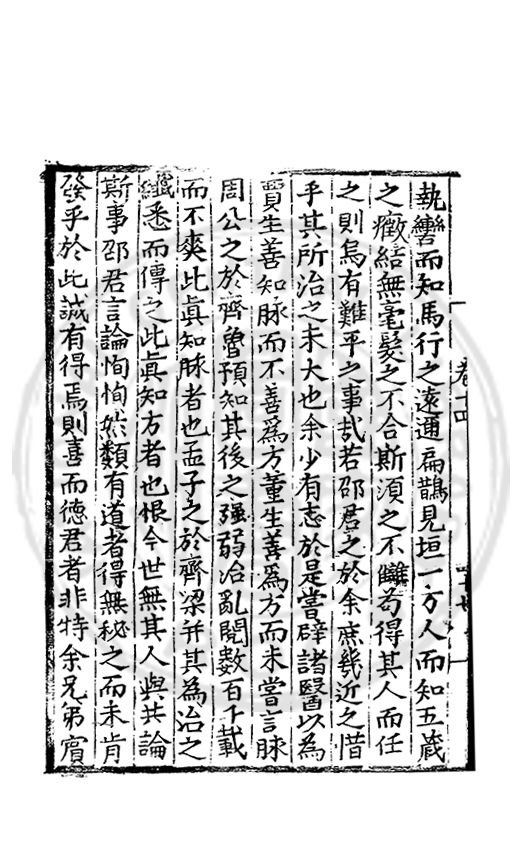 執轡而知馬行之遠邇扁鵲見垣一方人而知五蔵
之癥結無毫髮之不合斯須之不讎苟得其人而任
之則烏有難平之事哉若邵君之於余庶幾近之惜
乎其所治之未大也余少有志於是嘗辟諸醫以為
賈生善知脉而不善為方董生善為方而未嘗言脉
周公之於齊魯預知其後之强弱治亂閱數百千載
而不爽此真知脉者也孟子之於齊梁并其為治之
纎悉而傳之此真知方者也恨今世無其人與共論
斯事邵君言論恂恂於類有道者得無秘之而未肯
發乎於此誠有得焉則喜而德君者非特余兄弟賔
卷十四